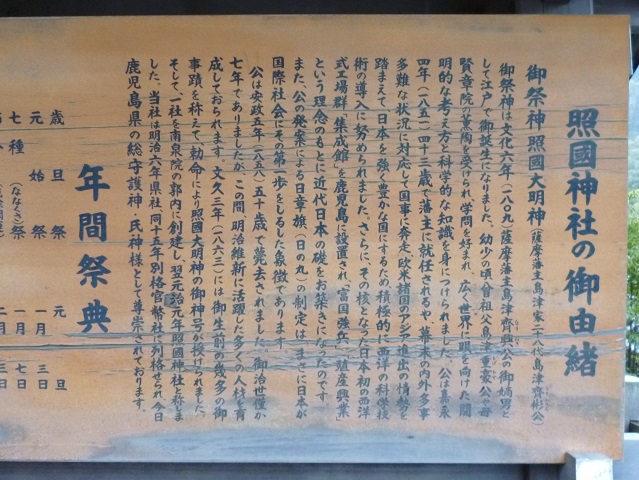 照國神社の御由緒
御祭神 照國大明神（薩摩藩主島津家二八代島津齊彬公）
御祭神は文化六年（一八〇九）薩摩藩主島津齊興公の御嫡男と
して江戸で御誕生になりました。幼少の頃、曾祖父島津重豪公や母
賢章院の薫陶を受けられ、学問を好まれ、広く世界に眼を向けた開
明的な考え方と科学的な知識を身につけられました。公は嘉永
四年（一八五一）四十三歳で藩主に就任されるや、幕末の内外多事
多難な状況に対応して国事に奔走、欧米諸国のアジア進出の情勢を
踏まえて、日本を強く豊かな国にするため、積極的に西洋の科学技
術の導入に努められました。さらに、その核となった日本初の西洋
式工場群「集成館」を鹿児島に設置され、「富国強兵」「殖産興業」
という理念のもとに近代日本の礎をお築きになったのです。
また、公の発案による日章旗（日の丸）の制定は、まさに日本が
国際社会にその第一歩をしるした象徴であります。
公は安政五年（一八五八）五十歳で薨去されました。御治世僅か
七年でありましたが、この間、明治維新に活躍した多くの人材を育
成しておられます。文久三年（一八六三）には御生前の幾多の御
事蹟を称えて、勅命により照國大明神の御神号が授けられました。
そして、一社を南泉院の郭内に創建し、翌元治元年照國神社と称しま
した。当社は明治六年県社、同十五年別格官幣社に列格され、今日
鹿児島県の総守護神・氏神様として尊崇されております。
年間祭典
歳旦祭 元旦
元始祭 一月三日
七種祭（ななくさ） 一月七日